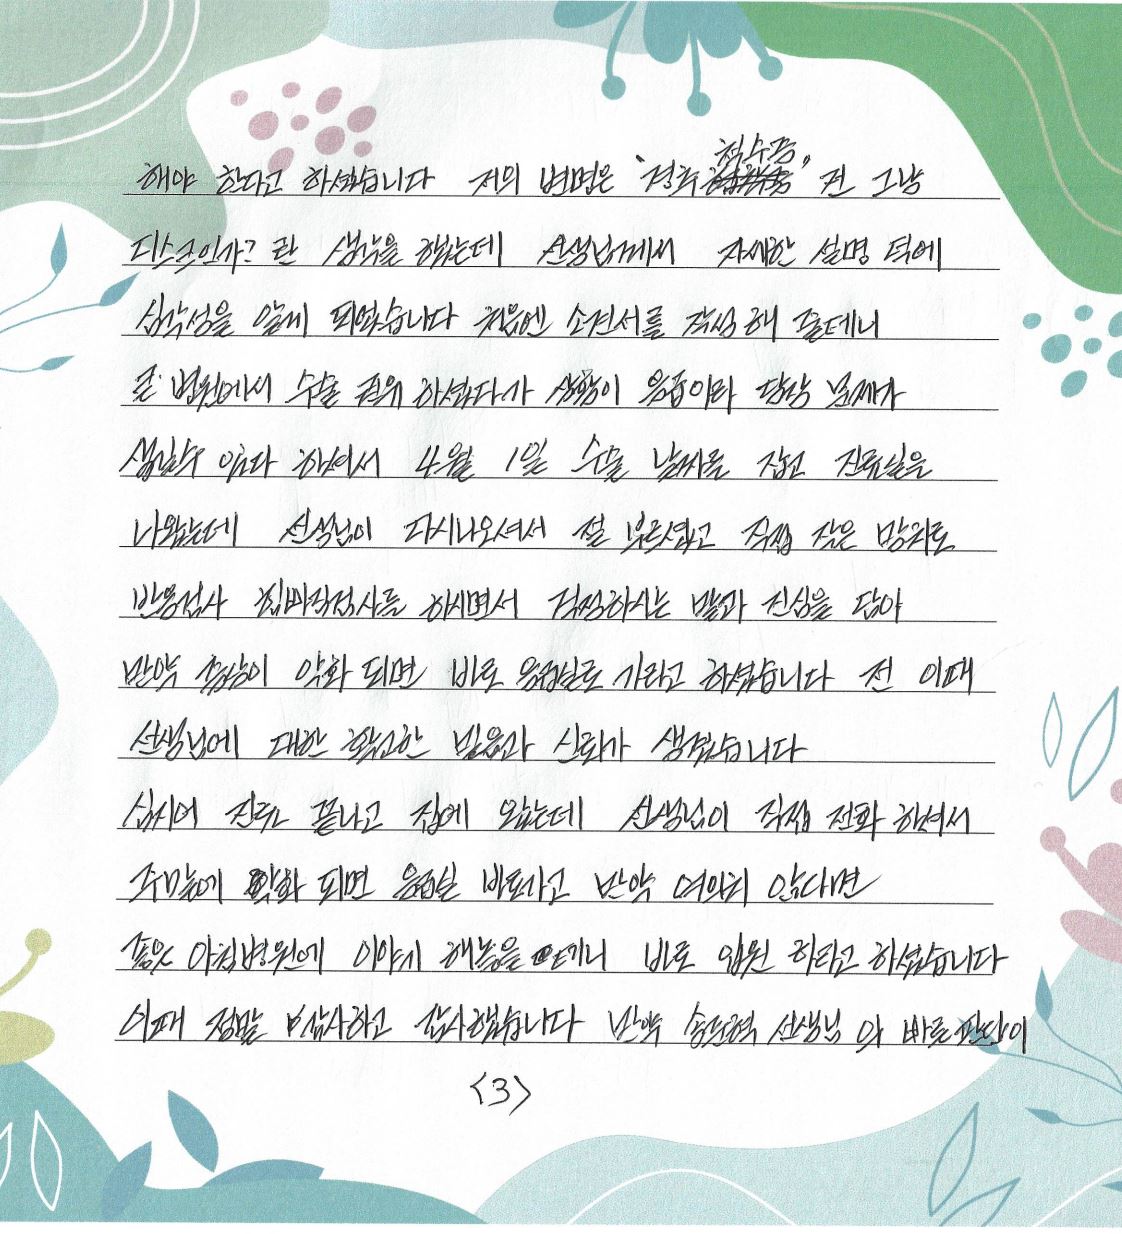 해야 한다고 하셨습니다 저의 병명은 "경추 척수증" 전 그냥
디스크인가? 란 생각을 했는데 선생님께서 자세한 설명 덕에
심각성을 알게 되었습니다 처음엔 소견서를 작성 해 줄테니
큰 병원에서 수술 권유 하셨다가 상황이 응급이라 당장 문제가
생길수 있다 하셔서 4월 1일 수술 날짜를 잡고 진료실을
나왔는데 선생님이 다시나오셔서 절 부르셨고 직접 작은 망치로
반응검사 힘빠짐검사를 하시면서 걱정하시는 말과 진심을 담아
만약 증상이 악화 되면 바로 응급실로 가라고 하셨습니다 전 이때
선생님에 대한 확고한 믿음과 신뢰가 생겼습니다
심지어 진료 끝나고 집에 왔는데 선생님이 직접 전화 하셔서
주말에 악화 되면 응급실 바로가고 만약 여의치 않다면
아침병원에 이야기 해놓을 테니 바로 입원 하라고 하셨습니다
이때 정말 감사하고 감사했습니다 만약 선생님 의 빠른 판단이
<3>